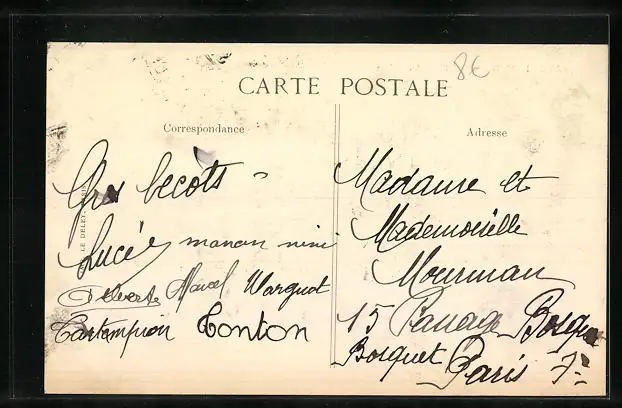 8€
CARTE POSTALE
Correspondance
Adresse
Gros becots -
Lucée manan nini
Marcel Marquot
Tartempion Tonton
LE DELEY, PARIS
Madame et
Mademoiselle
Mourman
15 Passage Bosquet
Bosquet Paris 7e